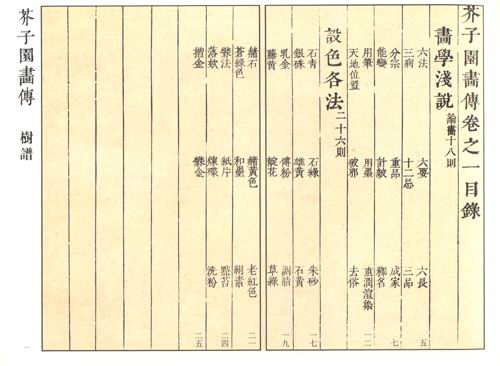 芥子園畫傳卷之一目錄
畫學淺說 論畫十八則
六法 六要 六長 五
三病 十二忌 三品
分宗 重品 成家 七
能變 計皴 釋名
用筆 用墨 重潤渲染 一二
天地位置 破邪 去俗
設色各法 二十六則
石青 石綠 朱砂 一七
銀硃 雄黃 石黃
乳金 傅粉 調脂 一九
藤黃 靛花 草綠
赭石 赭黃色 老紅色 二一
蒼綠色 和墨 絹素
礬法 紙片 點苔 二四
落款 煉碟 洗粉
揩金 礬金 二五
芥子園畫傳 樹譜 一